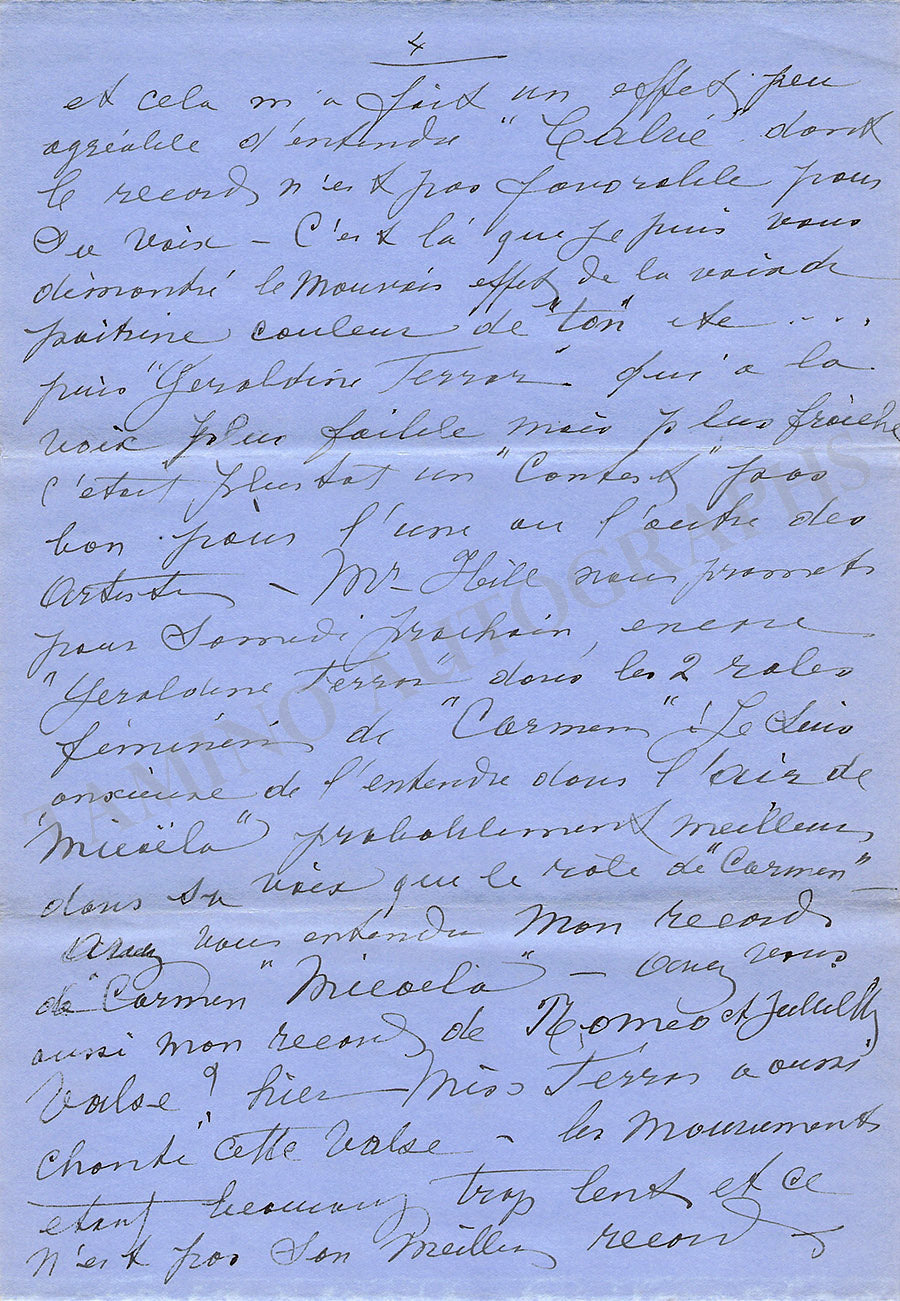 4
et cela m'a fait un effet peu
agréable d'entendre "Calvé" dont
le record n'est pas favorable pour
sa voix – C'est là que je puis vous
démontré le mauvais effet de la voix de
poitrine couleur de "ton" etc ....
puis "Geraldine Ferrar" qui a la
voix plus faible mais plus fraiche
c'était plustot un "Contest" pas
bon pour l'une ou l'autre des
Artistes – Mr Hill nous promets
pour Samedi prochain encore
"Geraldine Ferrar" dans les 2 roles
féminins de "Carmen"! Je suis
anxieuse de l'entendre dans l'air de
"Micaëla" probablement meilleur
dans sa voix que le role de "Carmen" –
Avez vous entendu mon record
de "Carmen" "Micaëla" – avez vous
aussi mon record de Romeo et Juliette
Valse? hier Miss Ferrar a aussi
chanté cette Valse – les mouvements
etant beaucoup trop lent et ce
n'est pas son meilleur record –
TAMINO AUTOGRAPHS